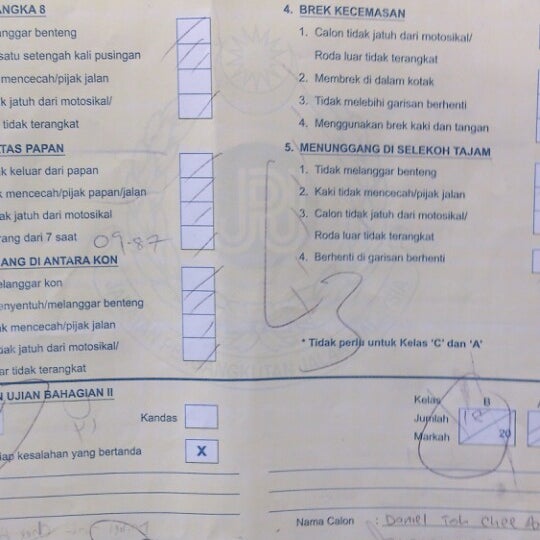 ANGKA 8
nggar benteng
satu setengah kali pusingan
mencecah/pijak jalan
k jatuh dari motosikal/
tidak terangkat
TAS PAPAN
k keluar dari papan
k mencecah/pijak papan/jalan
ak jatuh dari motosikal
rang dari 7 saat 09.87
ANG DI ANTARA KON
elanggar kon
enyentuh/melanggar benteng
ak mencecah/pijak jalan
dak jatuh dari motosikal/
ar tidak terangkat
4. BREK KECEMASAN
1. Calon tidak jatuh dari motosikal/
Roda luar tidak terangkat
2. Membrek di dalam kotak
3. Tidak melebihi garisan berhenti
4. Menggunakan brek kaki dan tangan
5. MENUNGGANG DI SELEKOH TAJAM
1. Tidak melanggar benteng
2. Kaki tidak mencecah/pijak jalan
3. Calon tidak jatuh dari motosikal/
Roda luar tidak terangkat
4. Berhenti di garisan berhenti
* Tidak perlu untuk Kelas 'C' dan 'A'
N UJIAN BAHAGIAN II
Kandas
iap kesalahan yang bertanda X
Kelas B
Jumlah 18
Markah 20
Nama Calon : Daniel Toh Chee